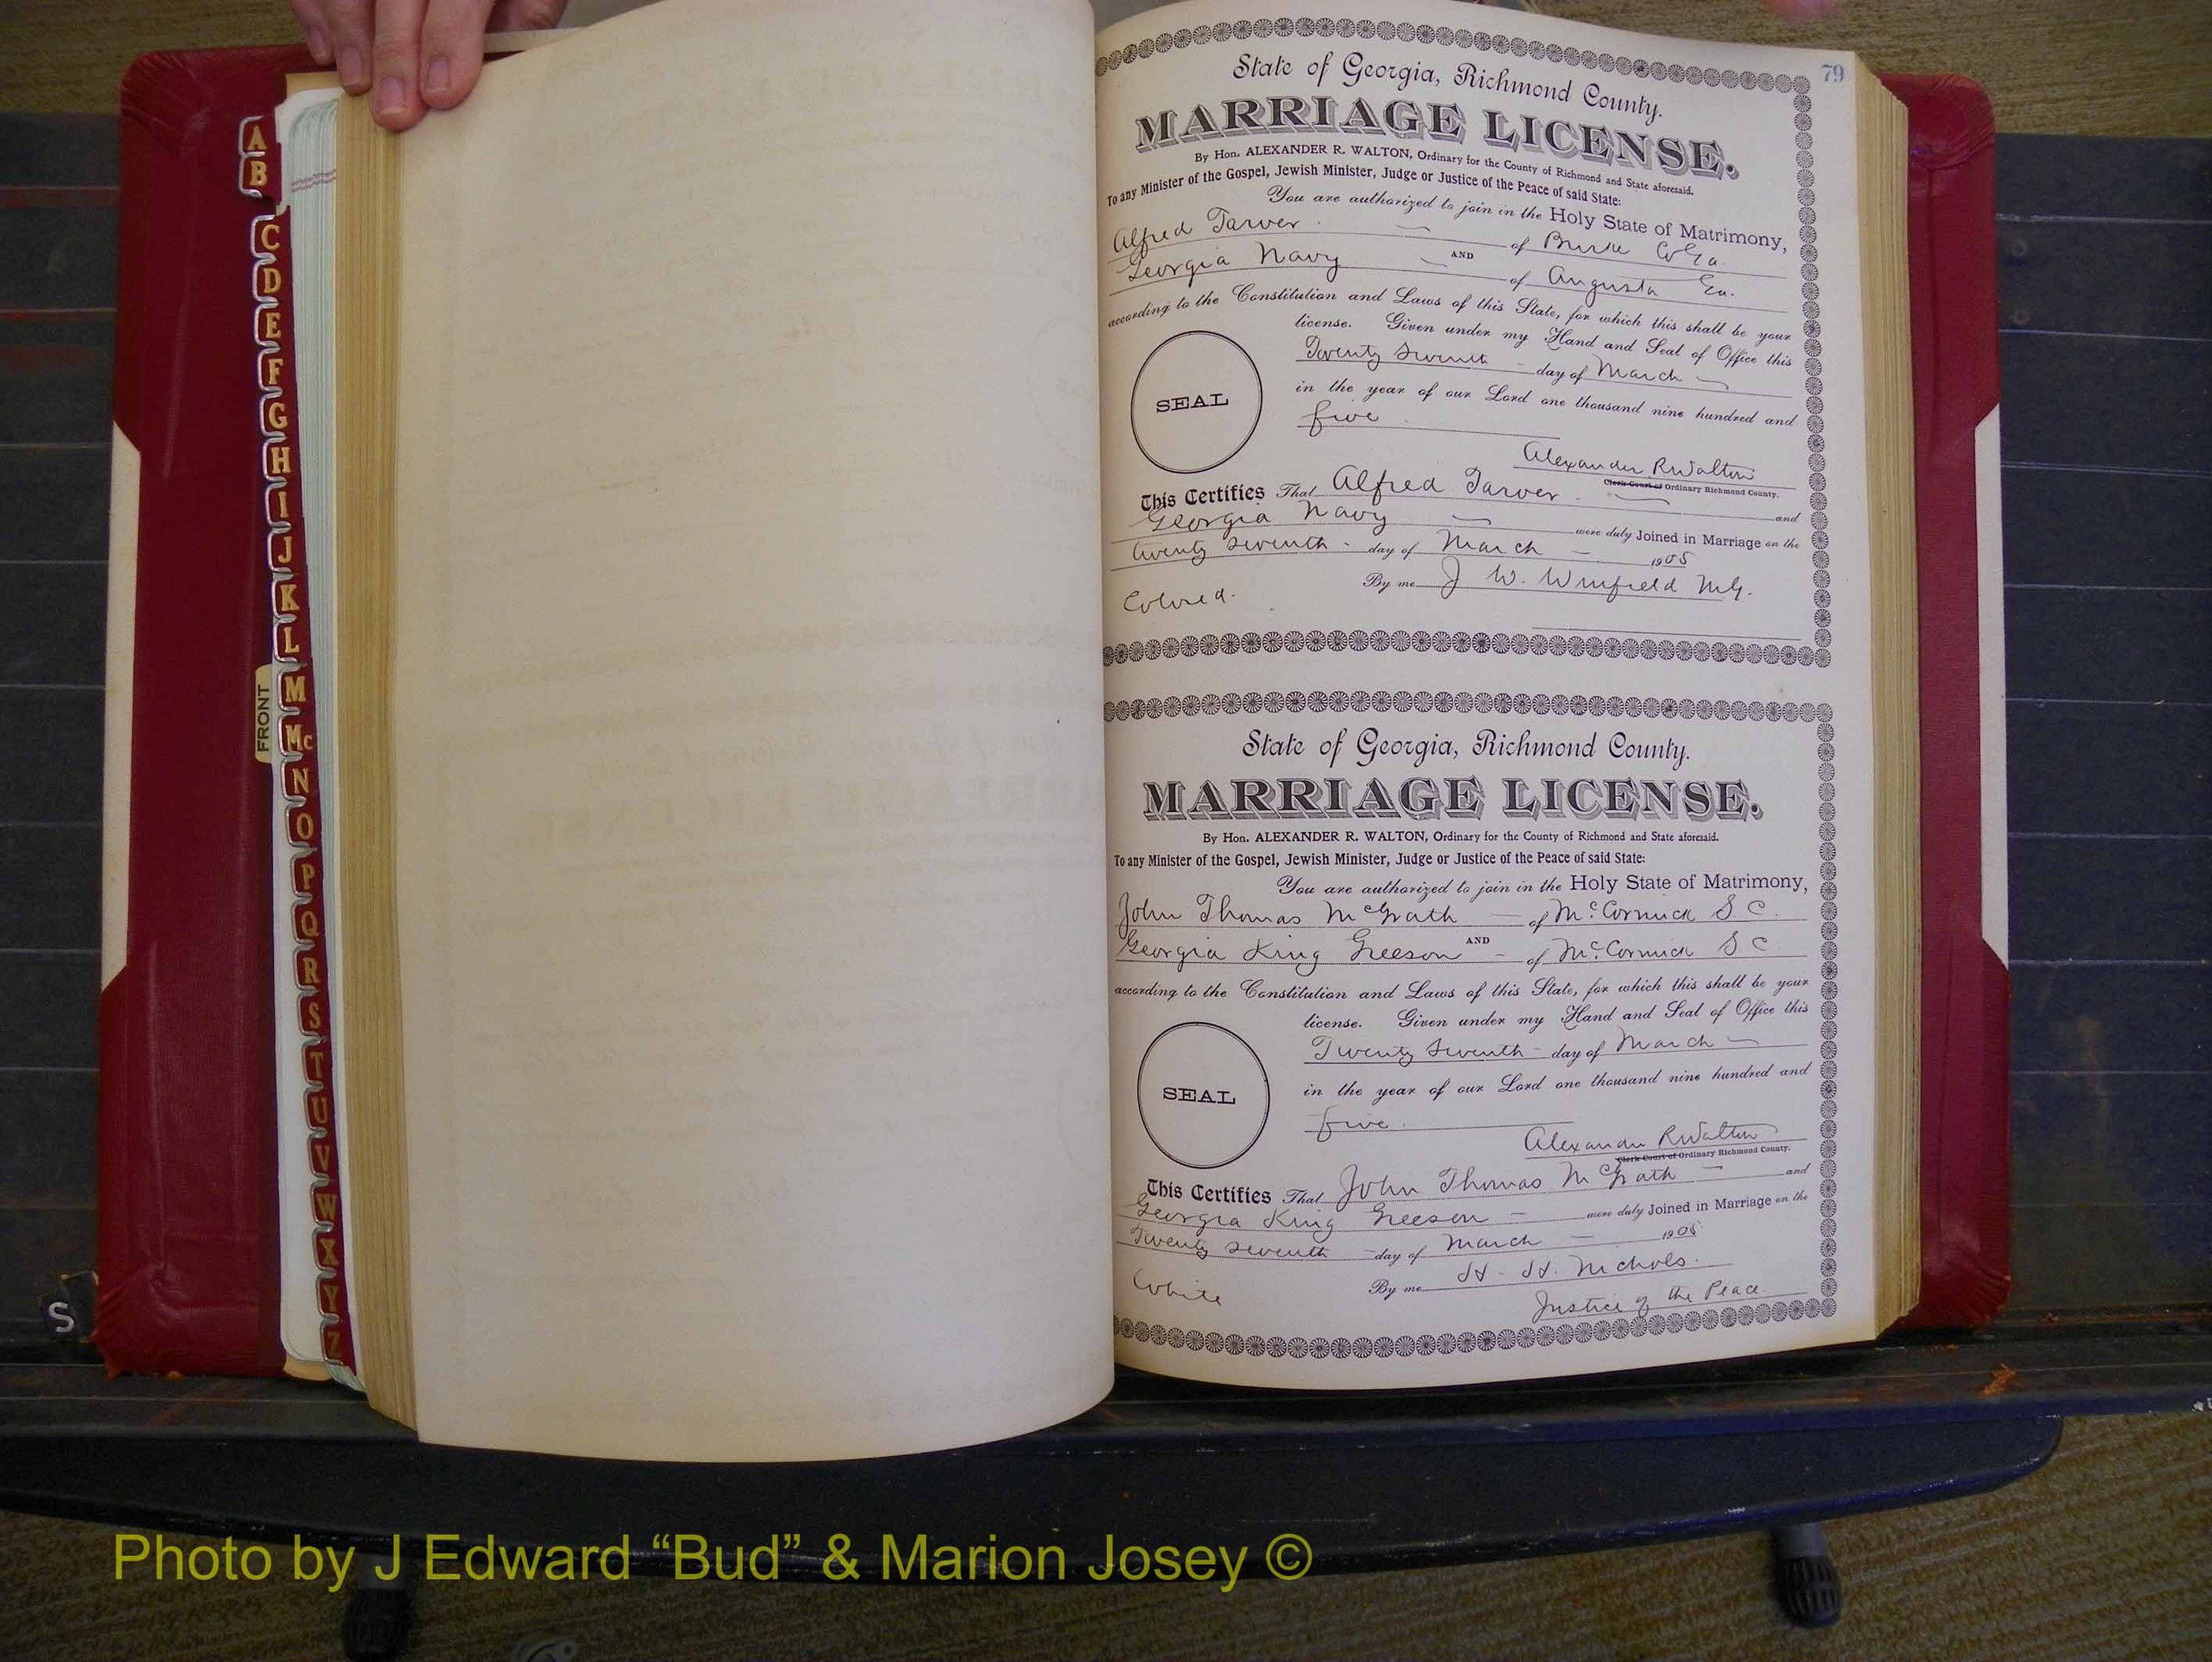 A
B
C
D
E
F
G
H
I
J
K
L
M
Mc
N
O
P
Q
R
S
T
U
V
W
X
Y
Z
FRONT
S
79
State of Georgia, Richmond County.
MARRIAGE LICENSE.
By Hon. ALEXANDER R. WALTON, Ordinary for the County of Richmond and State aforesaid.
To any Minister of the Gospel, Jewish Minister, Judge or Justice of the Peace of said State:
You are authorized to join in the Holy State of Matrimony,
Alfred Tarver of Burke Co Ga.
AND
Georgia Navy of Augusta Ga.
according to the Constitution and Laws of this State, for which this shall be your
license. Given under my Hand and Seal of Office this
Twenty Seventh day of March
in the year of our Lord one thousand nine hundred and
five
SEAL
Alexander R Walton
Clerk Court of Ordinary Richmond County.
This Certifies That Alfred Tarver and
Georgia Navy were duly Joined in Marriage on the
twenty seventh day of March 1905
By me J W. Winfield M.G.
Colored.
State of Georgia, Richmond County.
MARRIAGE LICENSE.
By Hon. ALEXANDER R. WALTON, Ordinary for the County of Richmond and State aforesaid.
To any Minister of the Gospel, Jewish Minister, Judge or Justice of the Peace of said State:
You are authorized to join in the Holy State of Matrimony,
John Thomas McGrath of McCormick S.C.
AND
Georgia King Greeson of McCormick S C
according to the Constitution and Laws of this State, for which this shall be your
license. Given under my Hand and Seal of Office this
Twenty Seventh day of March
in the year of our Lord one thousand nine hundred and
five
SEAL
Alexander R Walton
Clerk Court of Ordinary Richmond County.
This Certifies That John Thomas McGrath and
Georgia King Greeson were duly Joined in Marriage on the
Twenty seventh day of March 1905
By me H. H. Nichols.
White
Justice of the Peace.
Photo by J Edward “Bud” & Marion Josey ©